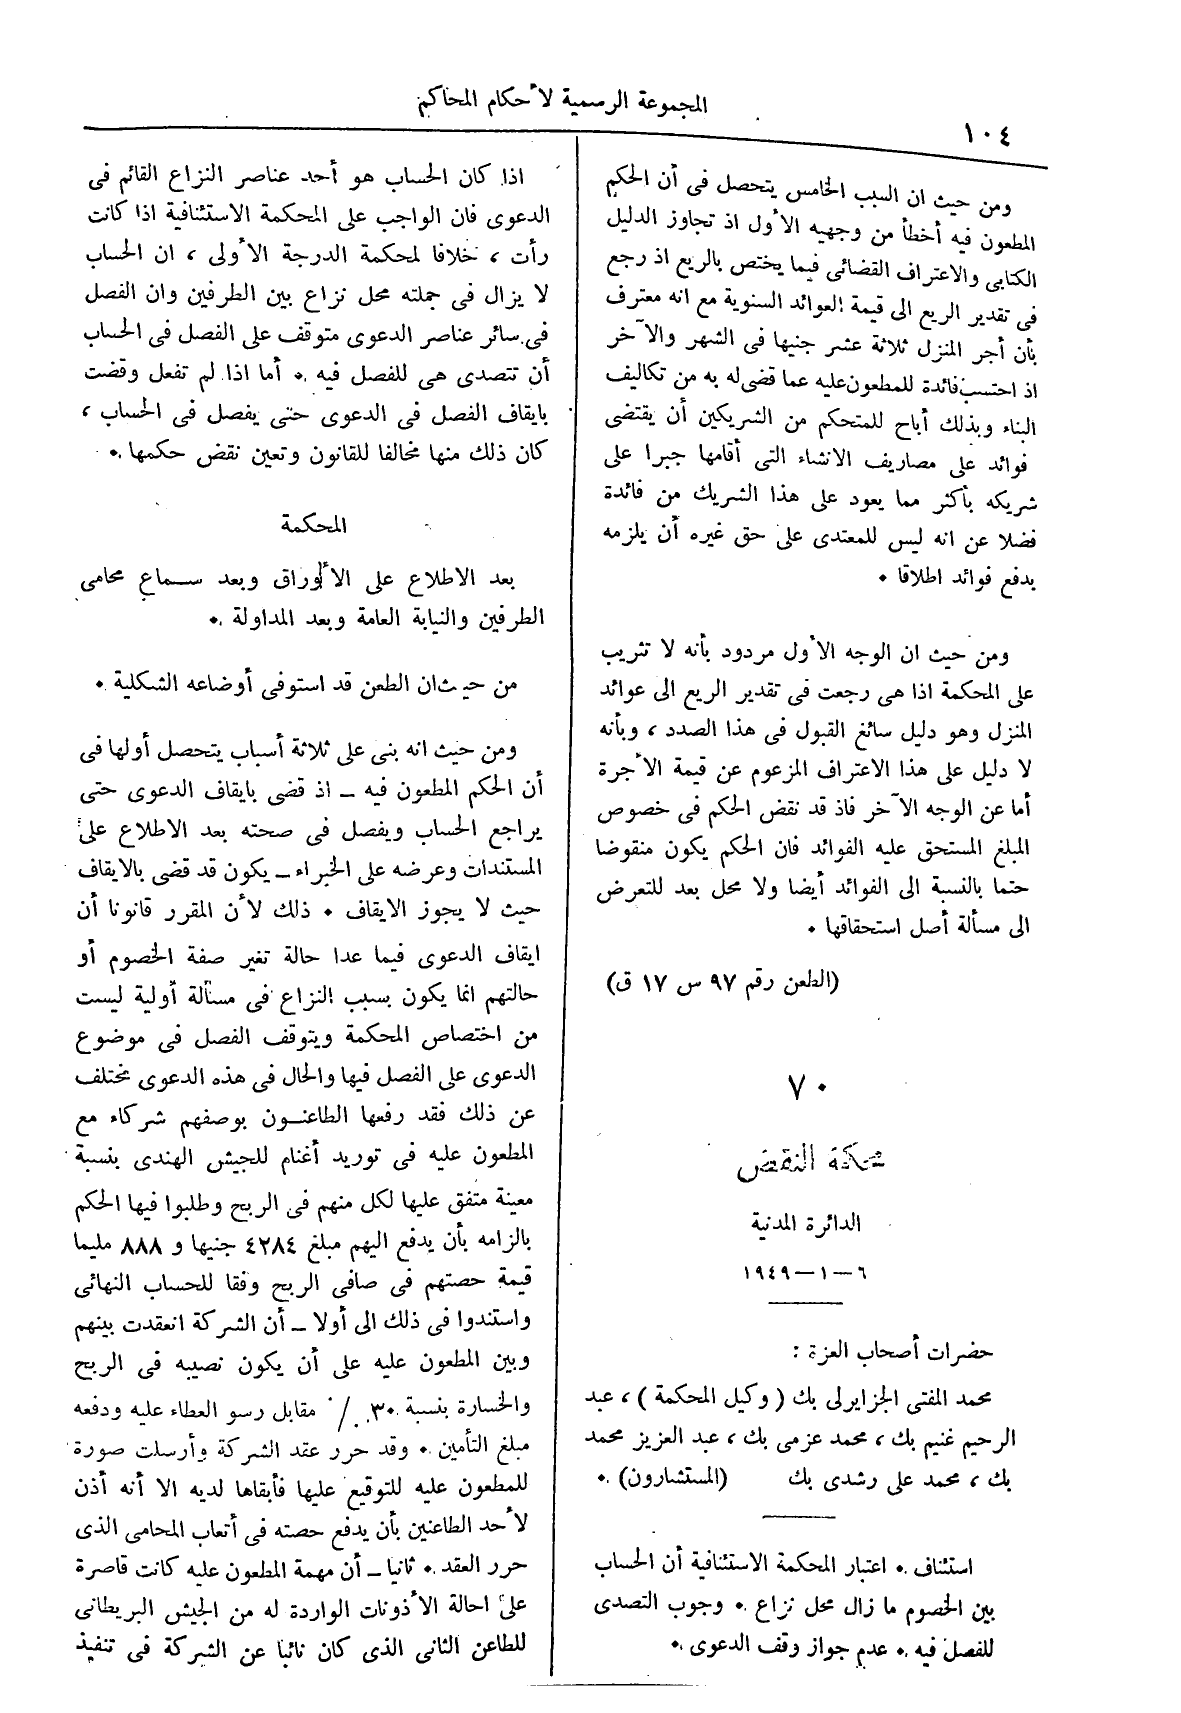 المجموعة الرسمية لأحكام المحاكم
١٠٤
ومن حيث ان السبب الخامس يتحصل فى أن الحكم
المطعون فيه أخطأ من وجهيه الأول اذ تجاوز الدليل
الكتابى والاعتراف القضائى فيما يختص بالريع اذ رجع
فى تقدير الريع الى قيمة العوائد السنوية مع انه معترف
بأن أجر المنزل ثلاثة عشر جنيها فى الشهر والآخر
اذ احتسب فائدة للمطعون عليه عما قضى له به من تكاليف
البناء وبذلك أباح للمتحكم من الشريكين أن يقتضى
فوائد على مصاريف الانشاء التى أقامها جبرا على
شريكه بأكثر مما يعود على هذا الشريك من فائدة
فضلا عن انه ليس للمعتدى على حق غيره أن يلزمه
بدفع فوائد اطلاقا ٠
ومن حيث ان الوجه الأول مردود بأنه لا تثريب
على المحكمة اذا هى رجعت فى تقدير الريع الى عوائد
المنزل وهو دليل سائغ القبول فى هذا الصدد ، وبأنه
لا دليل على هذا الاعتراف المزعوم عن قيمة الأجرة
أما عن الوجه الآخر فاذ قد نقض الحكم فى خصوص
المبلغ المستحق عليه الفوائد فان الحكم يكون منقوضا
حتما بالنسبة الى الفوائد أيضا ولا محل بعد للتعرض
الى مسألة أصل استحقاقها ٠
(الطعن رقم ٩٧ س ١٧ ق)
٧٠
محكمة النقض
الدائرة المدنية
٦-١-١٩٤٩
حضرات أصحاب العزة :
محمد المفتى الجزايرلى بك ( وكيل المحكمة ) ، عبد
الرحيم غنيم بك ، محمد عزمى بك ، عبد العزيز محمد
بك ، محمد على رشدى بك (المستشارون) ٠
استئناف ٠ اعتبار المحكمة الاستئنافية أن الحساب
بين الخصوم ما زال محل نزاع ٠ وجوب التصدى
للفصل فيه ٠ عدم جواز وقف الدعوى ٠
اذا كان الحساب هو أحد عناصر النزاع القائم فى
الدعوى فان الواجب على المحكمة الاستئنافية اذا كانت
رأت ، خلافا لمحكمة الدرجة الأولى ، ان الحساب
لا يزال فى جملته محل نزاع بين الطرفين وان الفصل
فى سائر عناصر الدعوى متوقف على الفصل فى الحساب
أن تتصدى هى للفصل فيه ٠ أما اذا لم تفعل وقضت
بايقاف الفصل فى الدعوى حتى يفصل فى الحساب ،
كان ذلك منها مخالفا للقانون وتعين نقض حكمها ٠
المحكمة
بعد الاطلاع على الأوراق وبعد سماع محامى
الطرفين والنيابة العامة وبعد المداولة ٠
من حيث ان الطعن قد استوفى أوضاعه الشكلية ٠
ومن حيث انه بنى على ثلاثة أسباب يتحصل أولها فى
أن الحكم المطعون فيه – اذ قضى بايقاف الدعوى حتى
يراجع الحساب ويفصل فى صحته بعد الاطلاع على
المستندات وعرضه على الخبراء – يكون قد قضى بالايقاف
حيث لا يجوز الايقاف ٠ ذلك لأن المقرر قانونا أن
ايقاف الدعوى فيما عدا حالة تغير صفة الخصوم أو
حالتهم انما يكون بسبب النزاع فى مسألة أولية ليست
من اختصاص المحكمة ويتوقف الفصل فى موضوع
الدعوى على الفصل فيها والحال فى هذه الدعوى يختلف
عن ذلك فقد رفعها الطاعنون بوصفهم شركاء مع
المطعون عليه فى توريد أغنام للجيش الهندى بنسبة
معينة متفق عليها لكل منهم فى الربح وطلبوا فيها الحكم
بالزامه بأن يدفع اليهم مبلغ ٤٢٨٤ جنيها و ٨٨٨ مليما
قيمة حصتهم فى صافى الربح وفقا للحساب النهائى
واستندوا فى ذلك الى أولا – أن الشركة انعقدت بينهم
وبين المطعون عليه على أن يكون نصيبه فى الربح
والخسارة بنسبة ٣٠ ٪ مقابل رسو العطاء عليه ودفعه
مبلغ التأمين ٠ وقد حرر عقد الشركة وأرسلت صورة
للمطعون عليه للتوقيع عليها فأبقاها لديه الا أنه أذن
لأحد الطاعنين بأن يدفع حصته فى أتعاب المحامى الذى
حرر العقد ٠ ثانيا – أن مهمة المطعون عليه كانت قاصرة
على احالة الأذونات الواردة له من الجيش البريطانى
للطاعن الثانى الذى كان نائبا عن الشركة فى تنفيذ